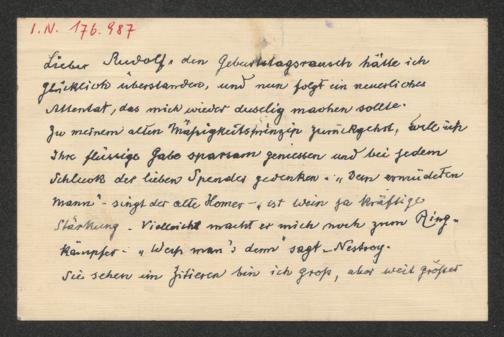 I.N. 176.987
Lieber Rudolf, den Geburtstagsrausch hätte ich
glücklich überstanden, und nun folgt ein neuerliches
Attentat, das mich wieder duselig machen sollte.
Zu meinem alten Mäßigkeitsprinzip zurückgekehrt, will ich
Ihre flüssige Gabe sparsam geniessen und bei jedem
Schluck des lieben Spenders gedenken. „Dem ermüdeten
Mann" - singt der alte Homer - „ist Wein ja kräftige
Stärkung. Vielleicht macht er mich noch zum Ring-
kämpfer. „Weiß man's denn" sagt Nestroy.
Sie sehen im Zitieren bin ich groß, aber weit größer